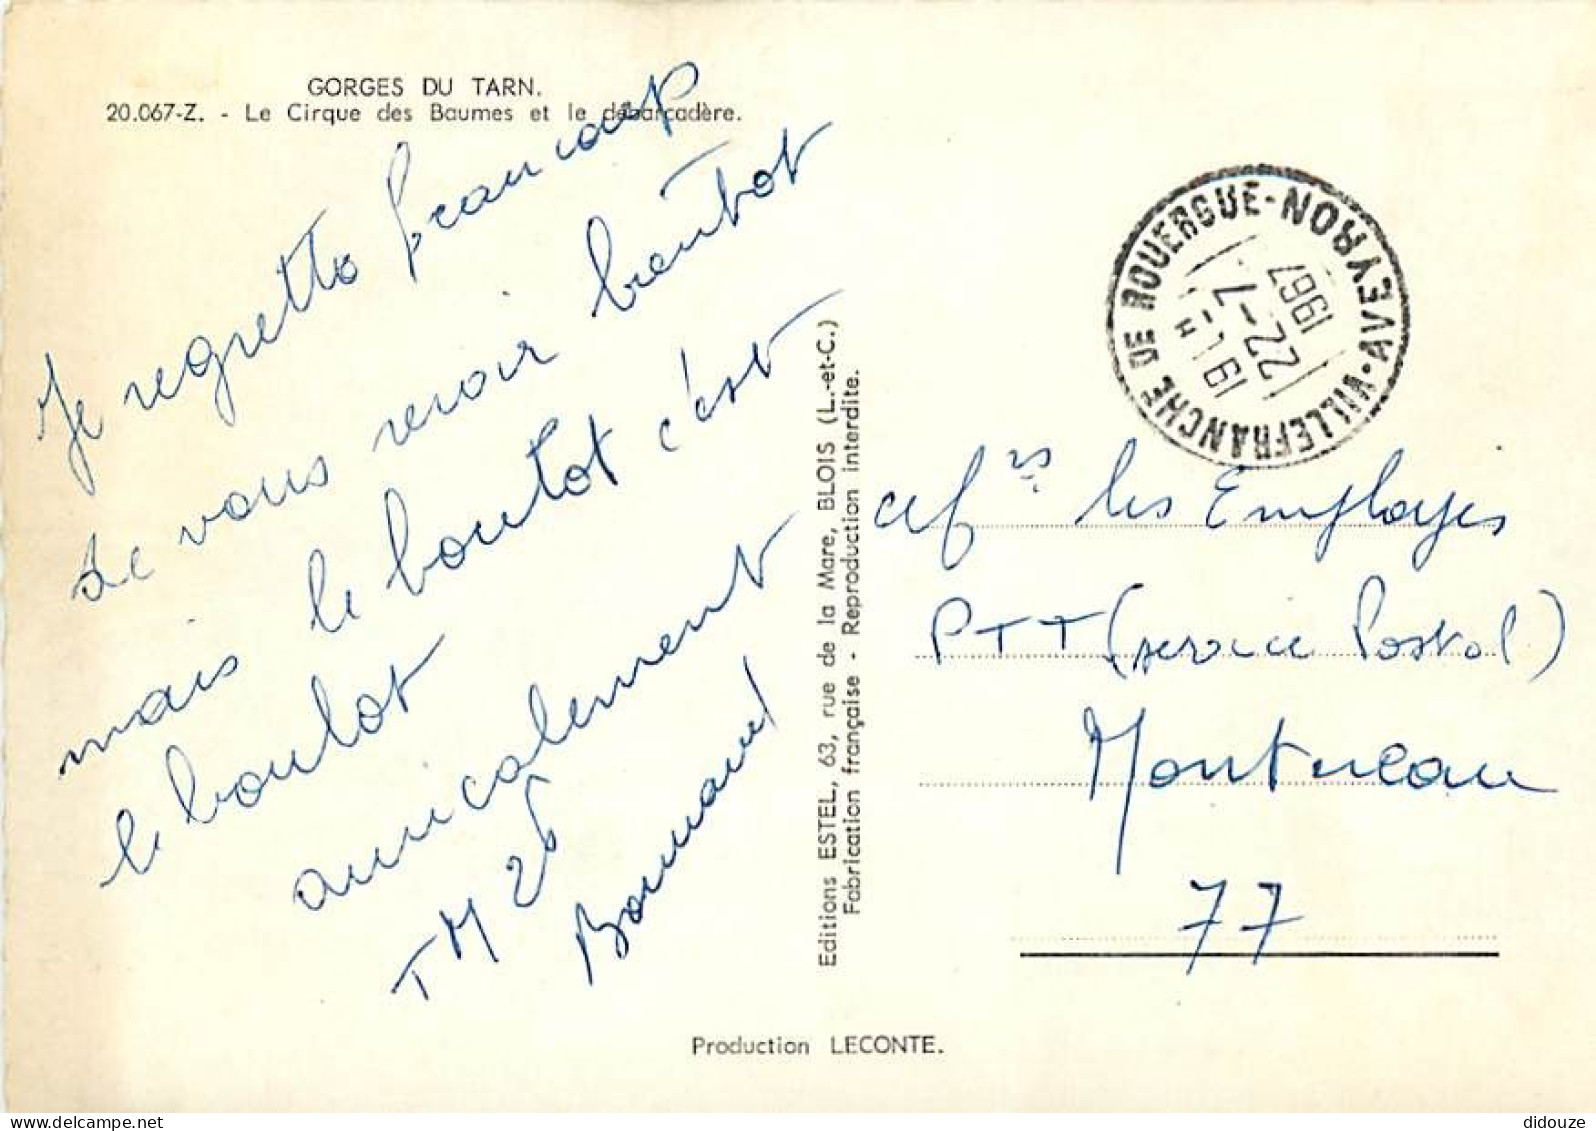 GORGES DU TARN.
20.067-Z. - Le Cirque des Baumes et le débarcadère.
Je regrette beaucoup
de vous revoir bientot
mais le boulot c'est
le boulot
amicalement
Editions ESTEL, 63, rue de la Mare, BLOIS (L.-et-C.)
Fabrication française - Reproduction interdite.
VILLEFRANCHE DE ROUERGUE - AVEYRON
19 H
22-7
1967
les Employés
PTT (service Postal)
Montereau
77
Production LECONTE.
delcampe.net
didouze